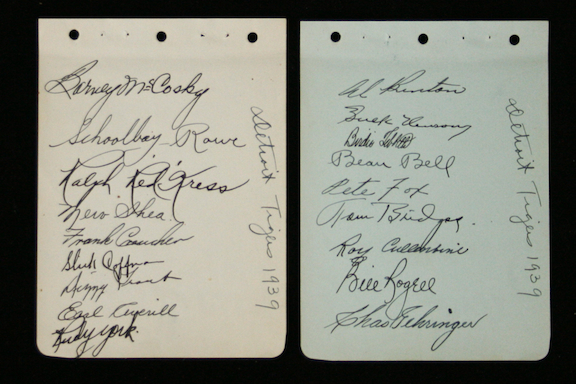 Barney McCosky
Schoolboy Rowe
Ralph "Red" Kress
Merv Shea
Frank Croucher
Slick Coffman
Dizzy Trout
Earl Averill
Rudy York
Detroit Tigers 1939
Al Benton
Buck Newsom
Birdie Tebbetts
Beau Bell
Pete Fox
Tom Bridges
Roy Cullenbine
Bill Rogell
Chas Gehringer
Detroit Tigers 1939